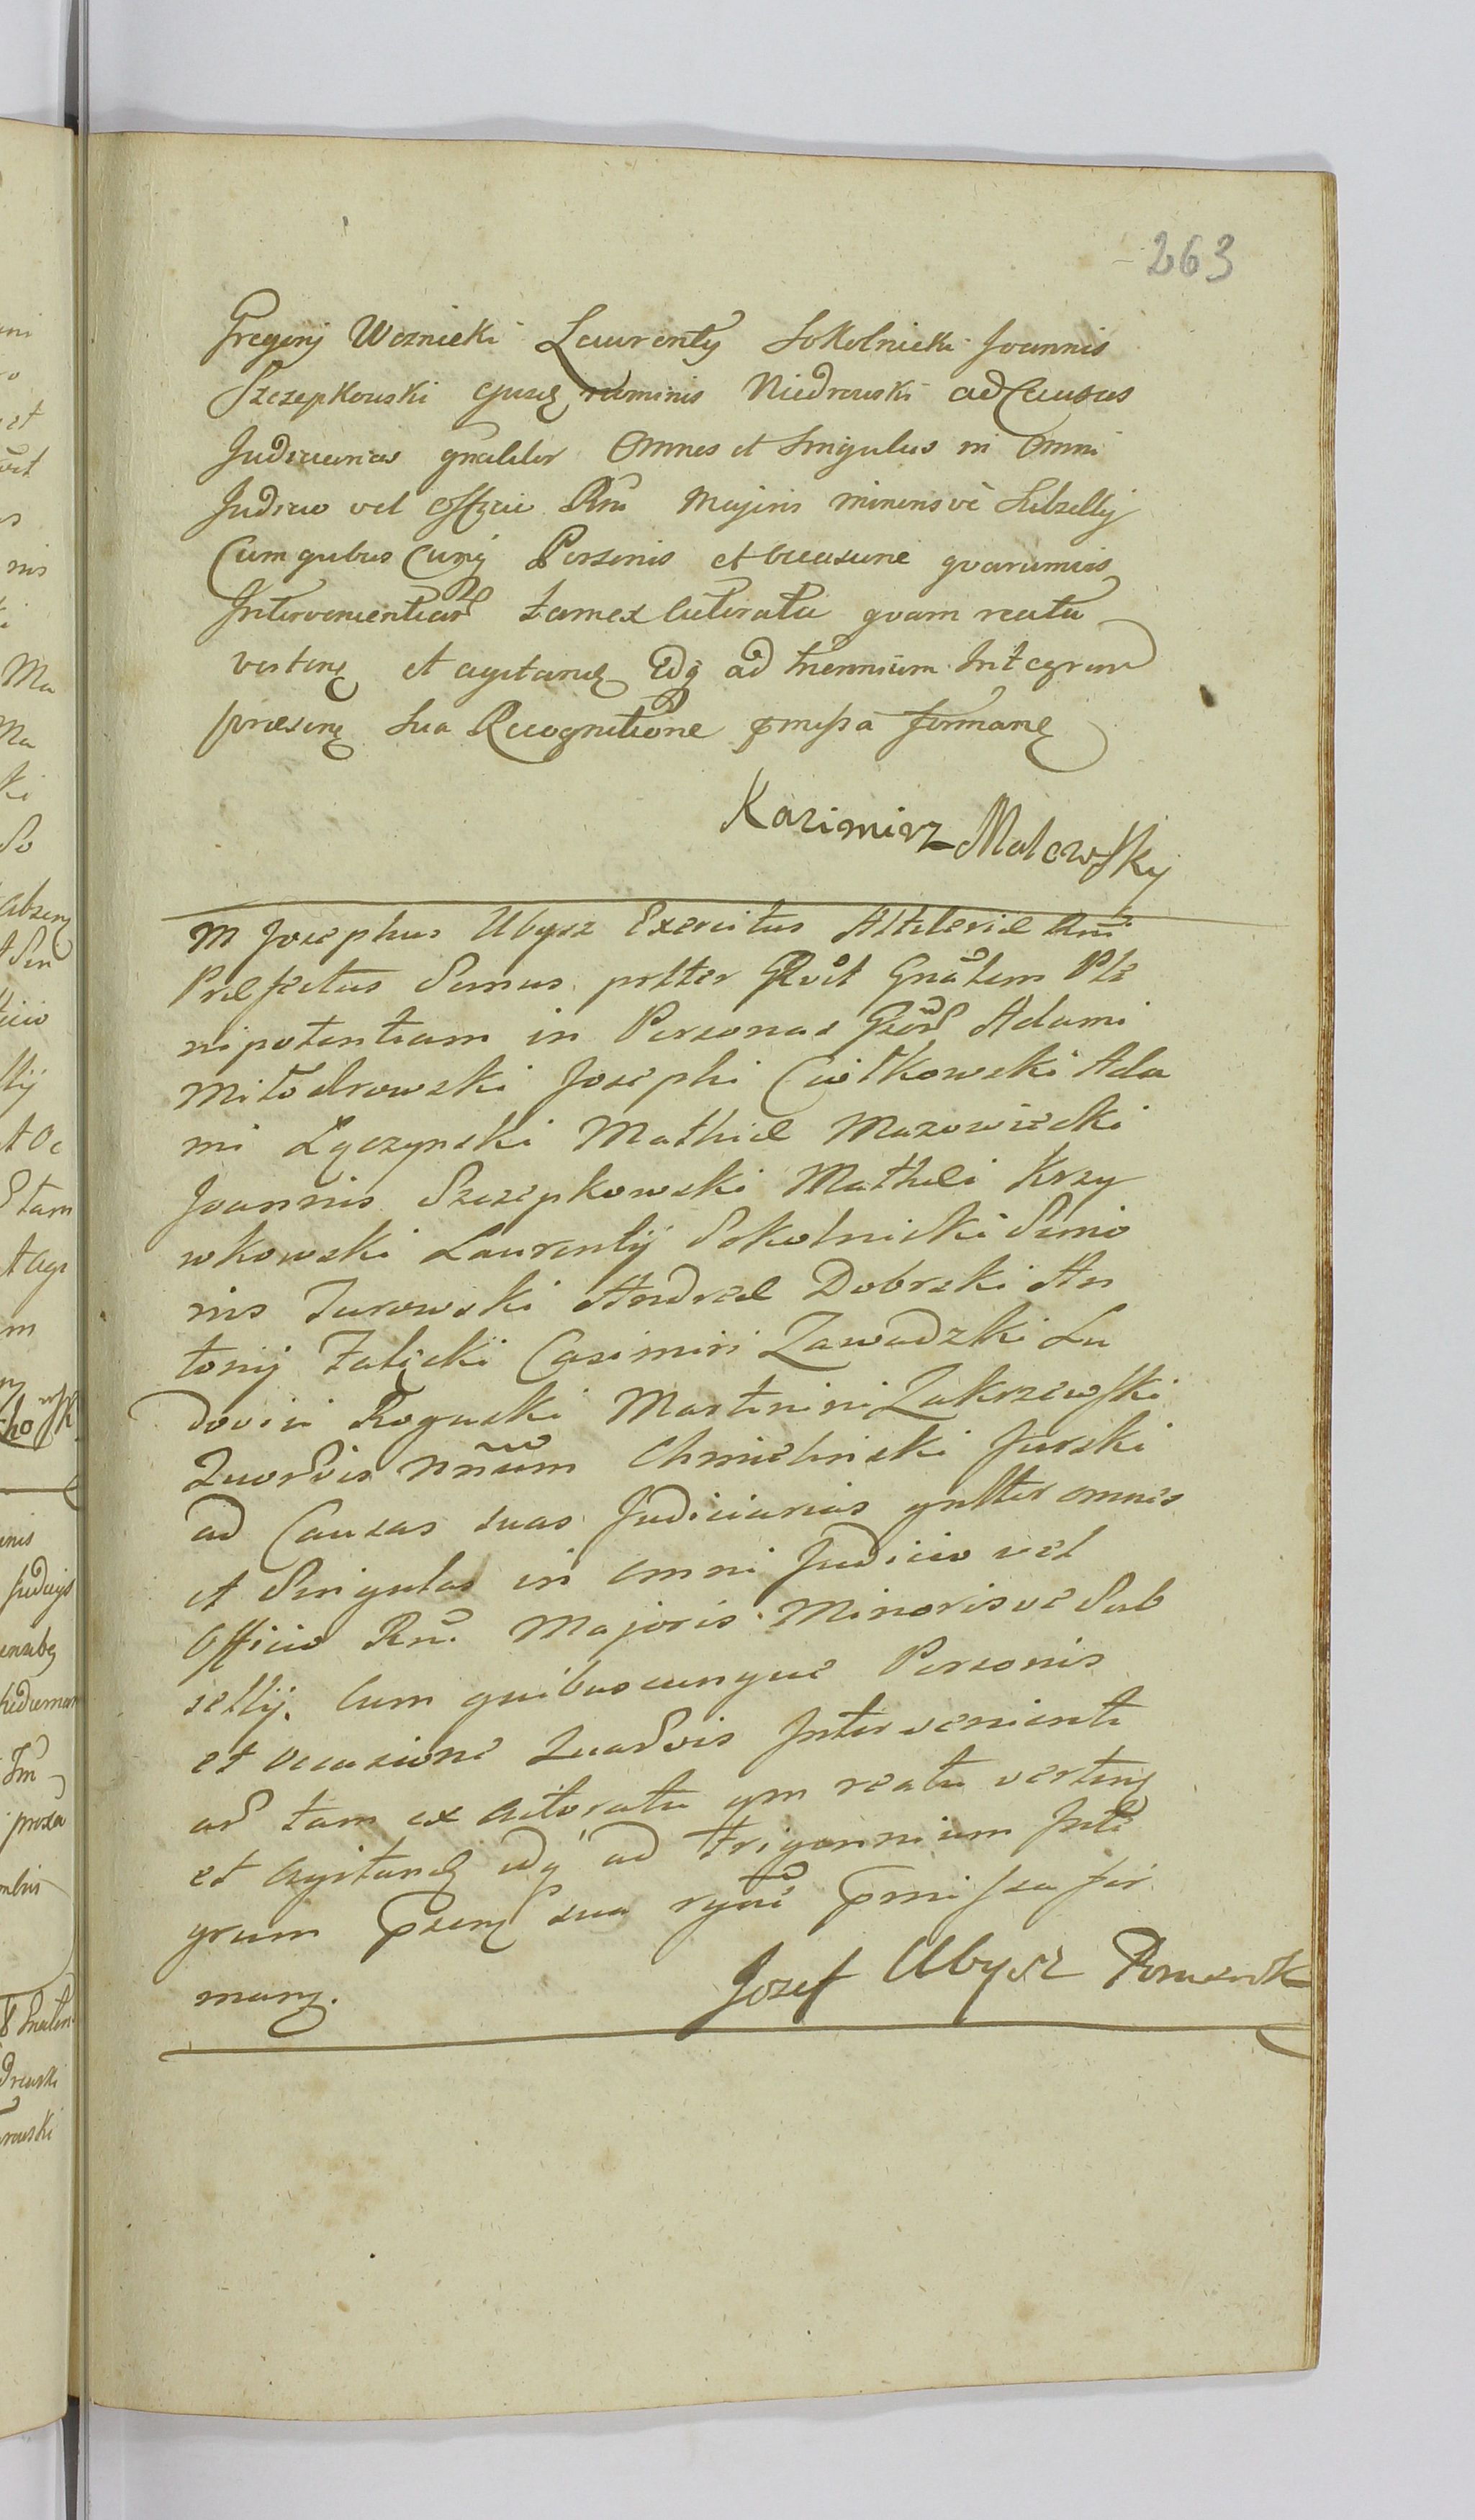 263
Gregorij Woznicki Laurentij Sokolnicki Joannis
Szczepkowski ejusd nominis Niedrowski ad Causas
Judiciarias gnaliter Omnes et Singulas in Omni
Judicio vel Officio Rni Majoris minorisve Subsellij
Cum quibus Cunq Personis et occasione quarumvis
Intervenientiar tam ex citeratu quam reatu
verten et agitand Idq ad triennium Integrum
praesen sua Recognitione pmissa firman
Kazimirz Malowsky
M Josephus Ubysz Exercitus Altileriae Rni
Praefectus Sanus pltter Rvit Gnalem Ple
nipotentiam in Personas Gsor Adami
Miłodrowski Josephi Ciołkowski Ada
mi Łączynski Mathiae Mazowiecki
Joannis Szczepkowski Mathaei Krzy
wkowski Laurentij Sokolnicki Simo
nis Turowski Andreae Dobrski An
tonij Załęcki Casimiri Zawadzki Lu
dovici Roguski Martini Zakrzewski
Quorvis nnium Chmielinski Jurski
ad Causas suas Judiciarias gnltter omnes
et Singulas in omni Judicio vel
Officio Rni Majoris Minorisve Sub
sellij. Cum quibuscunque Personis
et occasione Quarvis Intervenienti
ar tam ex actoratu qm reatu verten
et agitand idq ad triennium Inte
grum psen sua rgni pmissa fir
man.
Jozef Ubysz